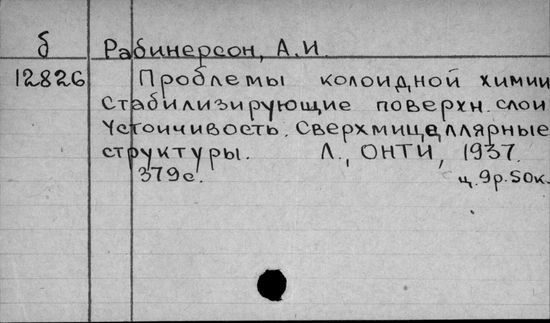 б Рабинерсон, А.И.
12826 Проблемы колоидной химии
Стабилизирующие поверхн. слои
Устоичивость. Сверхмицеллярные
структуры. Л., ОНТИ, 1937.
379с. ц. 9р.50к.